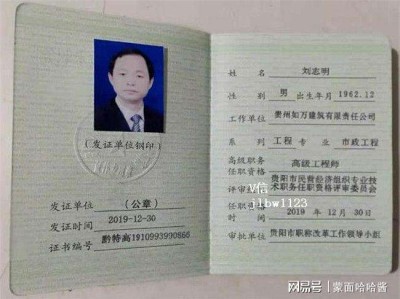 (发证单位钢印)
发证单位 (公章)
发证时间 2019-12-30
证书编号 黔特高1910993990886
姓名 刘志明
性别 男 出生年月 1962.12
工作单位 贵州如万建筑有限责任公司
系列 工程 专业 市政工程
高级职务
任职资格 高级工程师
贵阳市民营经济组织专业技
评审 术职务任职资格评审委员会
任职资格
时间 2019 年 12 月 30日
审批单位 贵阳市职称改革工作领导小组
V信
jlbw1123
网易号 | 蒙面哈哈酱